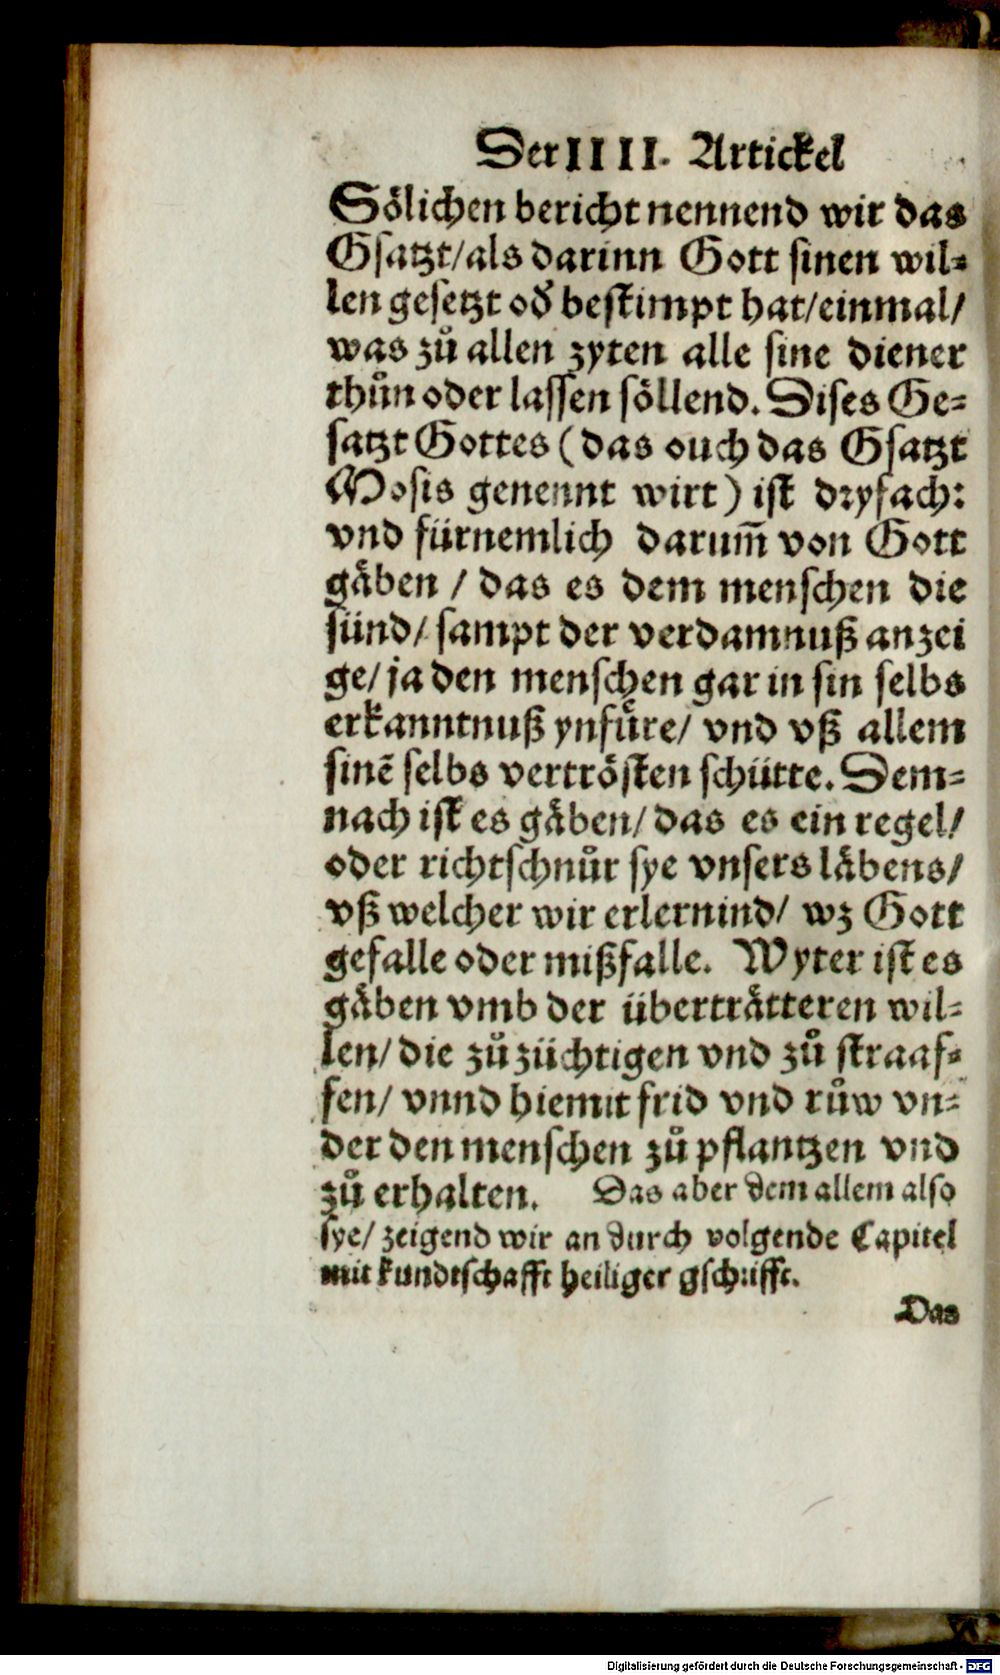 Der IIII. Artickel
Sölichen bericht nennend wir das
Gsatzt/als darinn Gott sinen wil⸗
len gesetzt od̕ bestimpt hat/einmal/
was zů allen zyten alle sine diener
thůn oder lassen söllend. Dises Ge⸗
satzt Gottes (das ouch das Gsatzt
Mosis genennt wirt) ist dryfach:
vnd fürnemlich darum̃ von Gott
gäben / das es dem menschen die
sünd/ sampt der verdamnuß anzei
ge/ ja den menschen gar in sin selbs
erkanntnuß ynfüre/ vnd vß allem
sinẽ selbs vertrösten schütte. Dem⸗
nach ist es gäben/ das es ein regel/
oder richtschnůr sye vnsers läbens/
vß welcher wir erlernind/ wz Gott
gefalle oder mißfalle. Wyter ist es
gäben vmb der überträtteren wil⸗
len/ die zů züchtigen vnd zů straaf⸗
fen/ vnnd hiemit frid vnd růw vn⸗
der den menschen zů pflantzen vnd
zů erhalten. Das aber dem allem also
sye/ zeigend wir an durch volgende Capitel
mit kundtschafft heiliger gschrifft.
Das
Digitalisierung gefördert durch die Deutsche Forschungsgemeinschaft - DFG